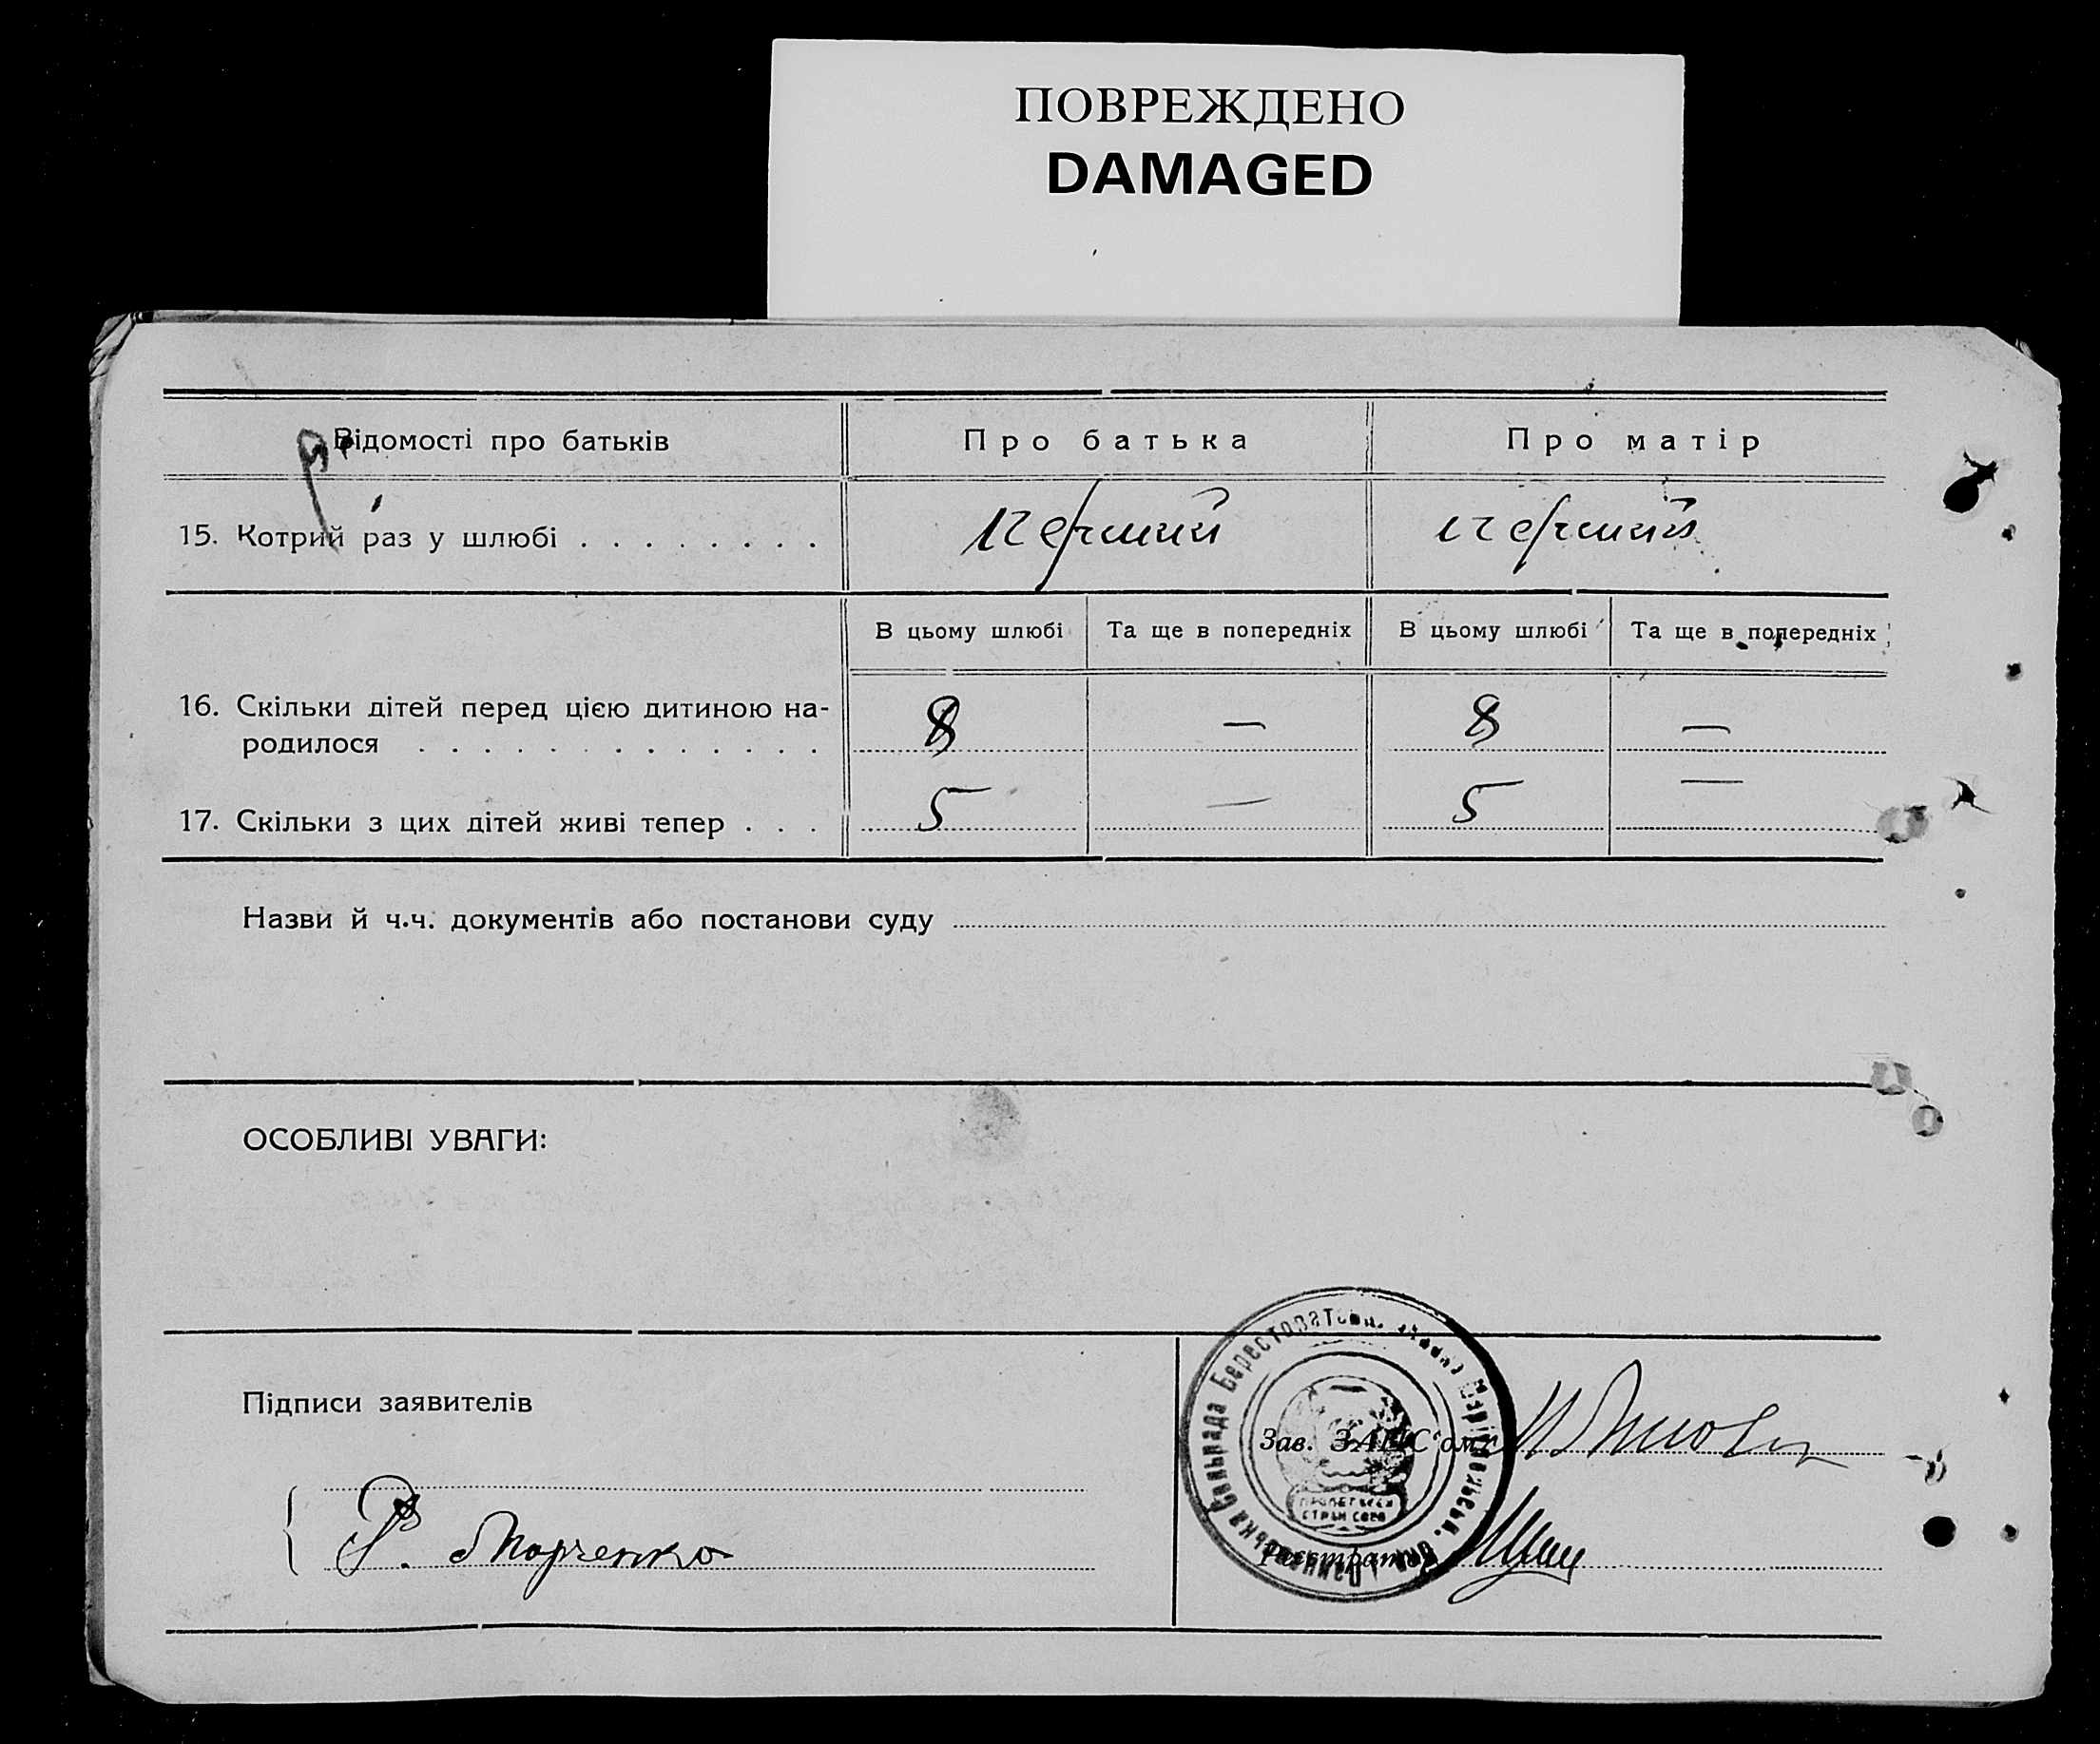 ПОВРЕЖДЕНО
DAMAGED
Відомості про батьків
Про батька
Про матір
15. Котрий раз у шлюбі . . . . . . . .
перший
перший
В цьому шлюбі
Та ще в попередніх
В цьому шлюбі
Та ще в попередніх
16. Скільки дітей перед цією дитиною на-
родилося . . . . . . . . . . . . .
8
—
8
—
17. Скільки з цих дітей живі тепер . . .
5
—
5
—
Назви й ч.ч. документів або постанови суду
ОСОБЛИВІ УВАГИ:
Підписи заявителів
Зав. ЗАГС'ом
Р. Марченко
Реєстратор
Сільрада Берестоват